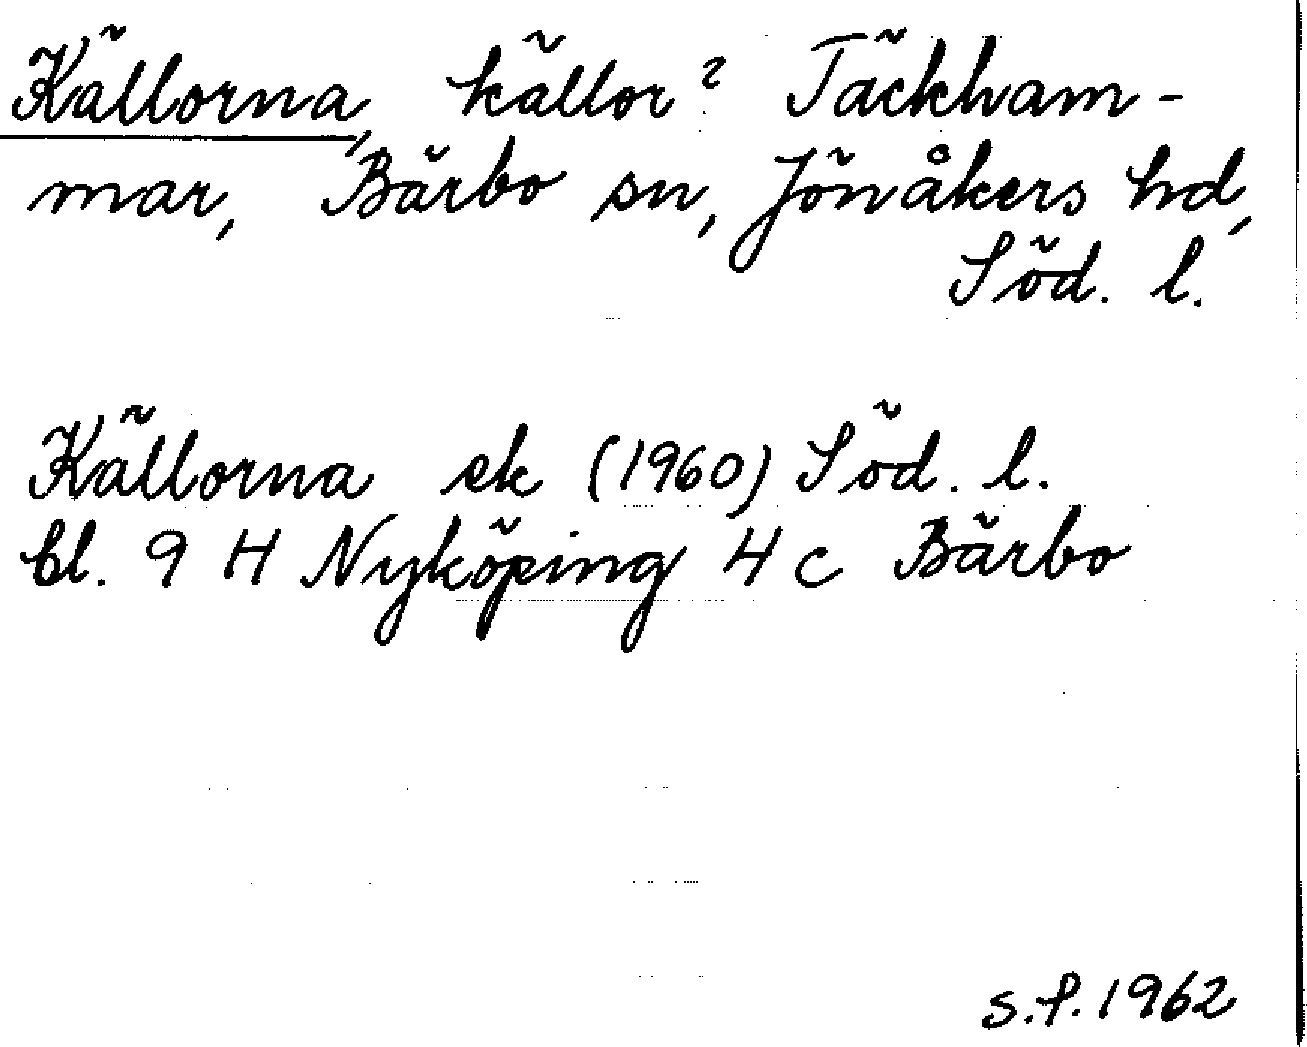 Källorna, källor? Täckham-
mar, Bärbo sn, Jönåkers hd,
Söd. l.
Källorna ek (1960) Söd. l.
bl. 9 H Nyköping 4 c Bärbo
S.P. 1962